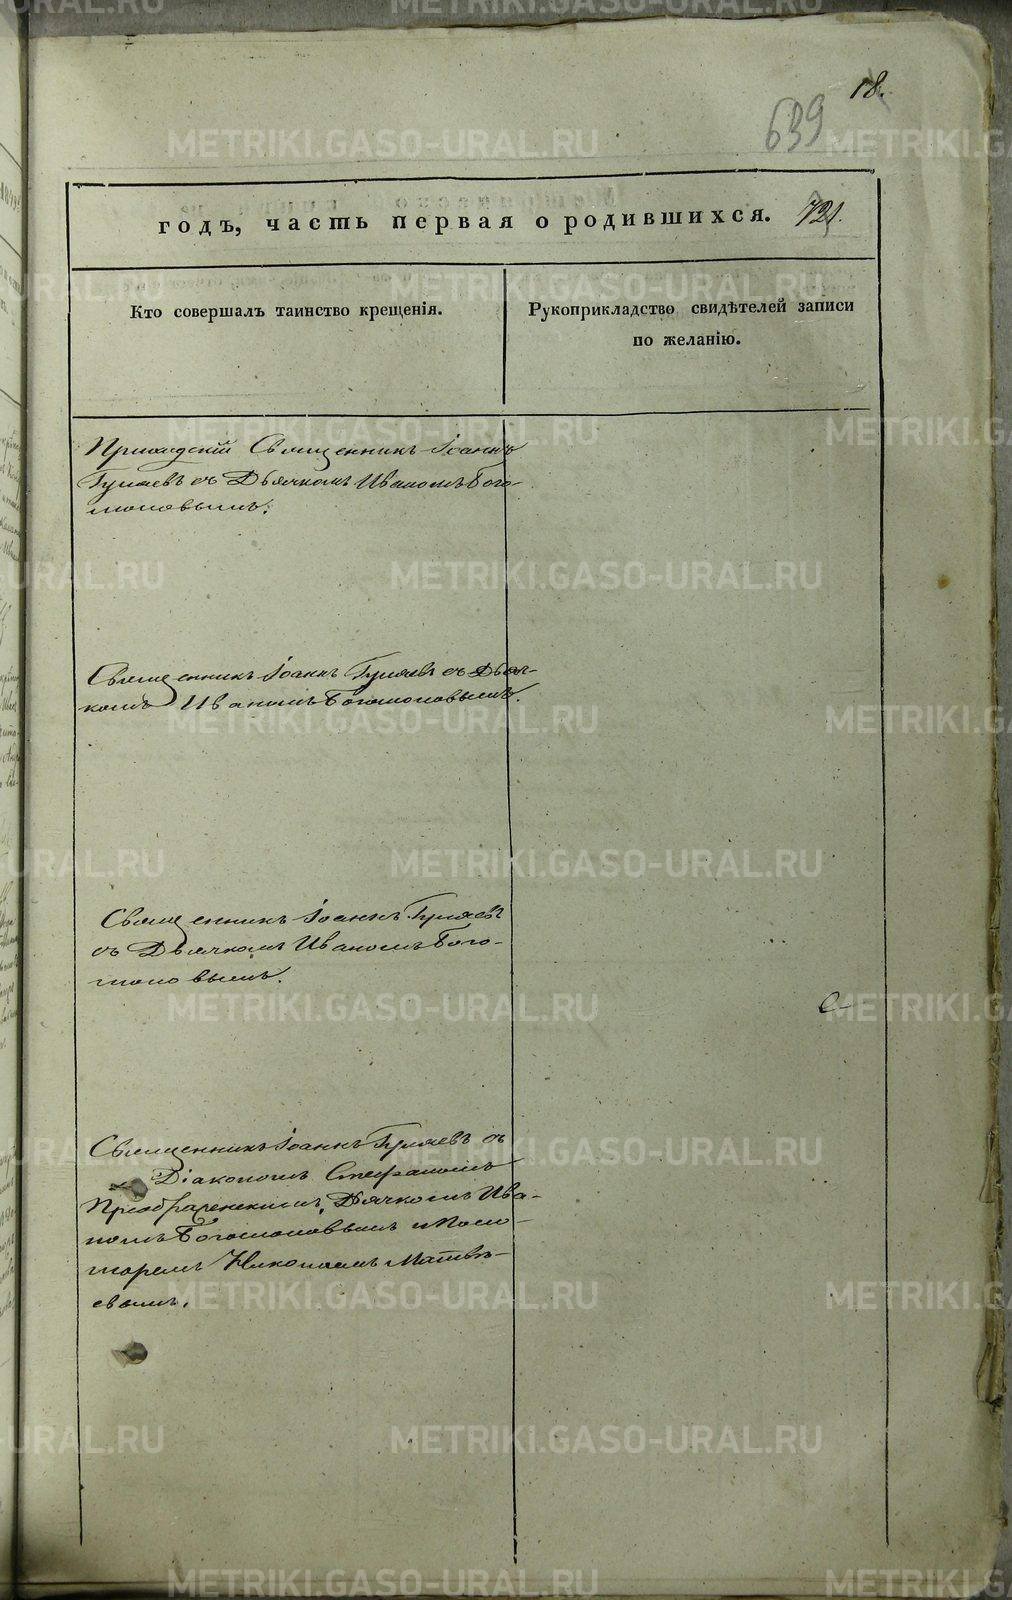 18.
639
годъ, часть первая о родившихся. 721.
Кто совершалъ таинство крещенія.
Рукоприкладство свидѣтелей записи
по желанію.
Приходскій Священникъ Іоаннъ
Гуляевъ съ Дьячкомъ Иваномъ Бого-
моловымъ.
Священникъ Іоаннъ Гуляевъ съ Дьяч-
комъ Иваномъ Богомоловымъ.
Священникъ Іоаннъ Гуляевъ
съ Дьячкомъ Иваномъ Бого-
моловымъ.
Священникъ Іоаннъ Гуляевъ съ
Діакономъ Стефаномъ
Преображенскимъ, Дьячкомъ Ива-
номъ Богомоловымъ и Поно-
маремъ Николаемъ Матвѣ-
евымъ.
METRIKI.GASO-URAL.RU